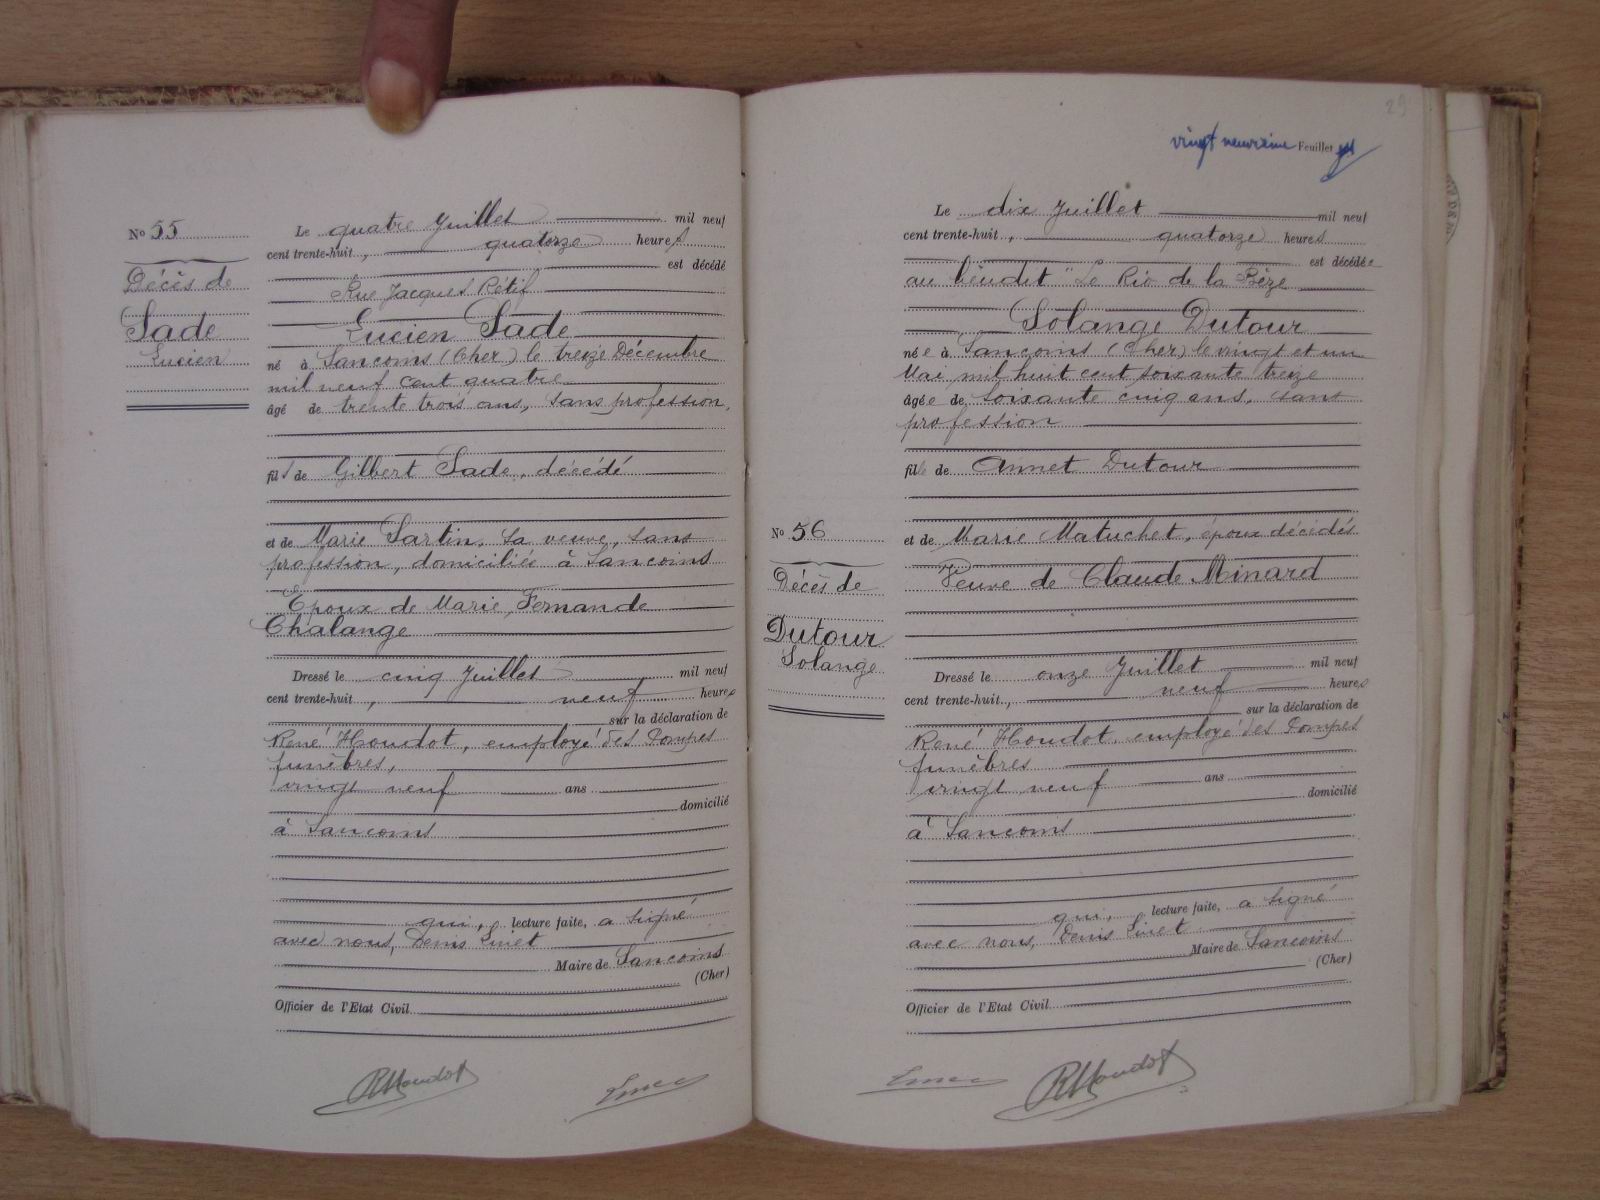 No 55
Décès de
Sade
Lucien
Le quatre Juillet mil neuf
cent trente-huit, quatorze heures
est décédé
Rue Jacques Rétif
Lucien Sade
né à Sancoins (Cher) le treize Décembre
mil neuf cent quatre
âgé de trente trois ans, sans profession,
fils de Gilbert Sade, décédé
et de Marie Sartin, sa veuve, sans
profession, domiciliée à Sancoins
Époux de Marie, Fernande
Chalange
Dressé le cinq Juillet mil neuf
cent trente-huit, neuf heures
sur la déclaration de
René Houdot, employé des Pompes
funèbres,
vingt neuf ans
domicilié
à Sancoins
qui, lecture faite, a signé
avec nous, Denis
Maire de Sancoins
(Cher)
Officier de l'Etat Civil
RHoudot
29
vingt neuvième Feuillet
No 56
Décès de
Dutour
Solange
Le dix Juillet mil neuf
cent trente-huit, quatorze heures
est décédée
au lieudit "Le Rio de la
Solange Dutour
née à Sancoins (Cher) le vingt et un
Mai mil huit cent soixante treize
âgée de soixante cinq ans, sans
profession
fille de Annet Dutour
et de Marie Matuchet, époux décédés
Veuve de Claude Minard
Dressé le onze Juillet mil neuf
cent trente-huit, neuf heures
sur la déclaration de
René Houdot, employé des Pompes
funèbres
vingt neuf ans
domicilié
à Sancoins
qui, lecture faite, a signé
avec nous, Denis
Maire de Sancoins
(Cher)
Officier de l'Etat Civil
RHoudot